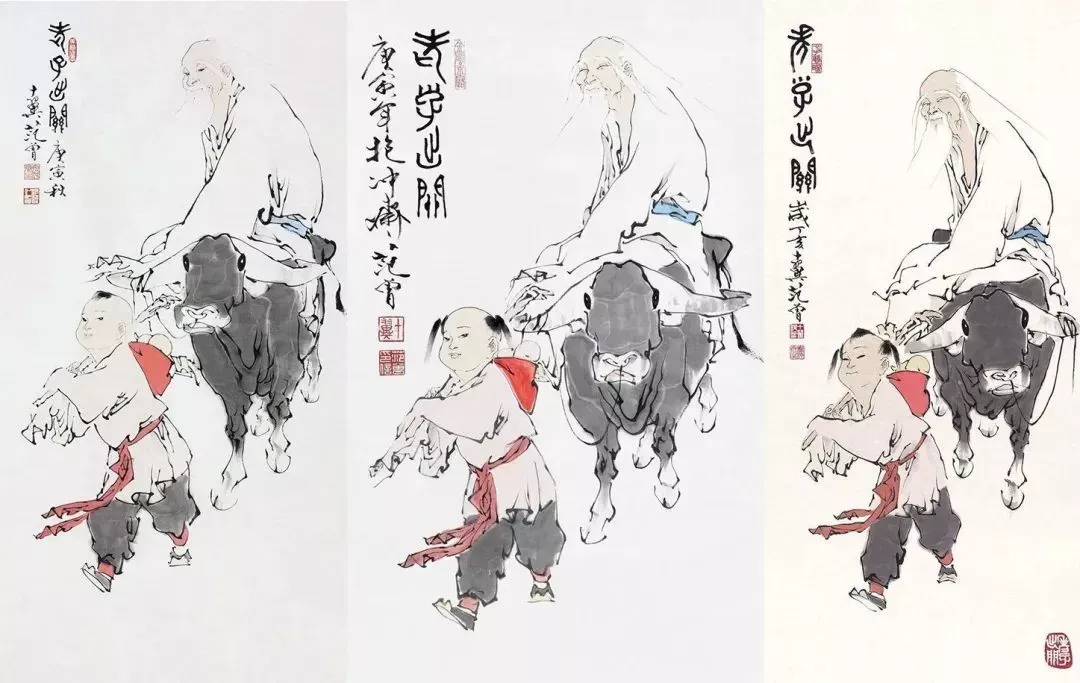 老子出關
庚寅秋
十翼范曾
老子出關
庚寅年抱冲齋
范曾
十翼
老子出關
歲丁亥十翼范曾